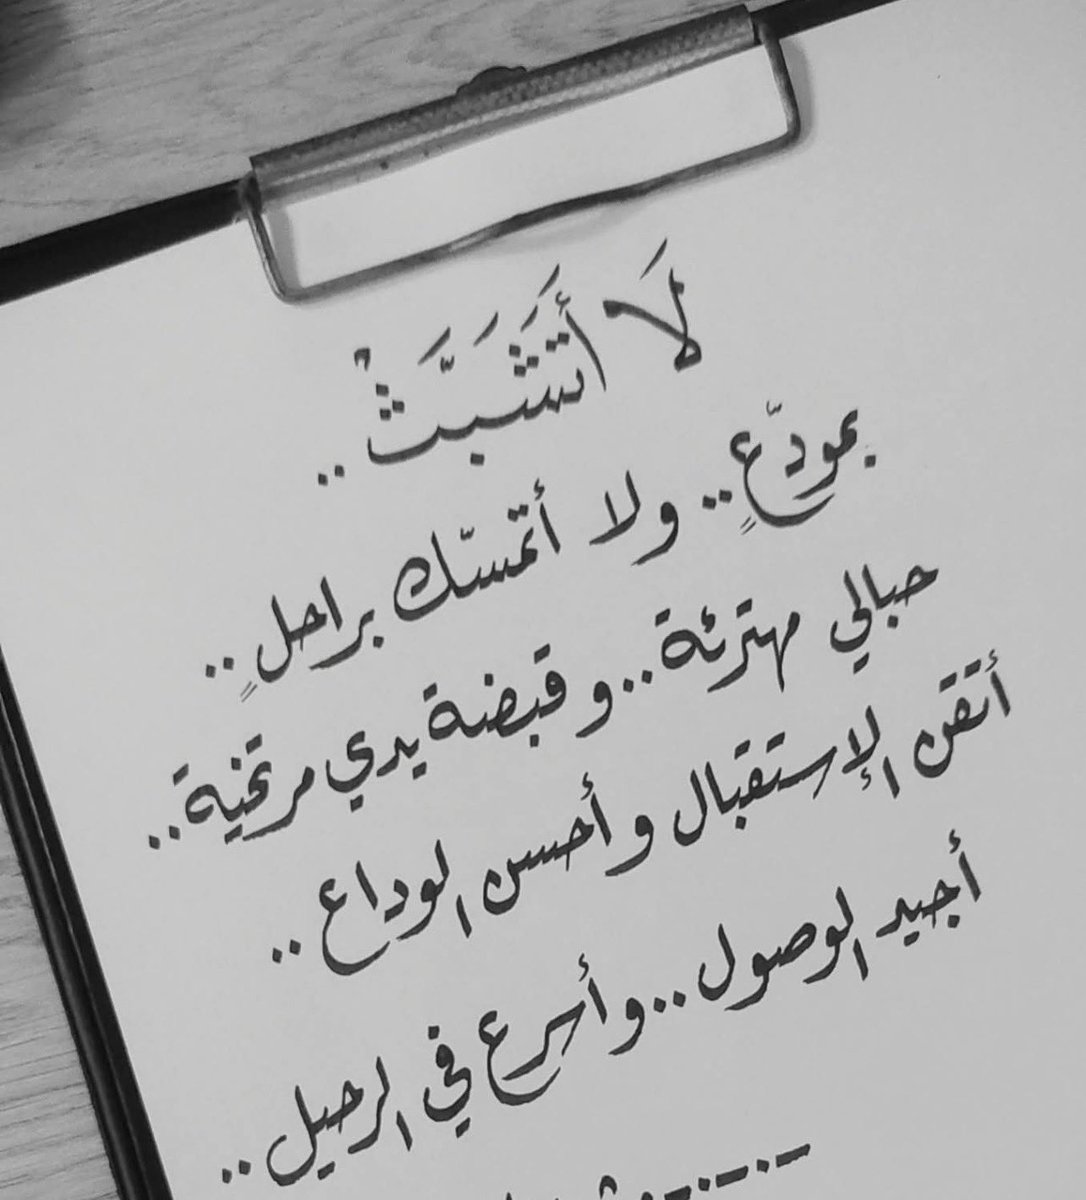 لَا أَتَشَبَّثْ ..
بمودّعٍ .. ولا أتمسّك براحلٍ ..
حبالي مهترئة .. و قبضة يدي مرتخية ..
أتقن الإستقبال و أحسن الوداع ..
أجيد الوصول .. و أسرع في الرحيل ..